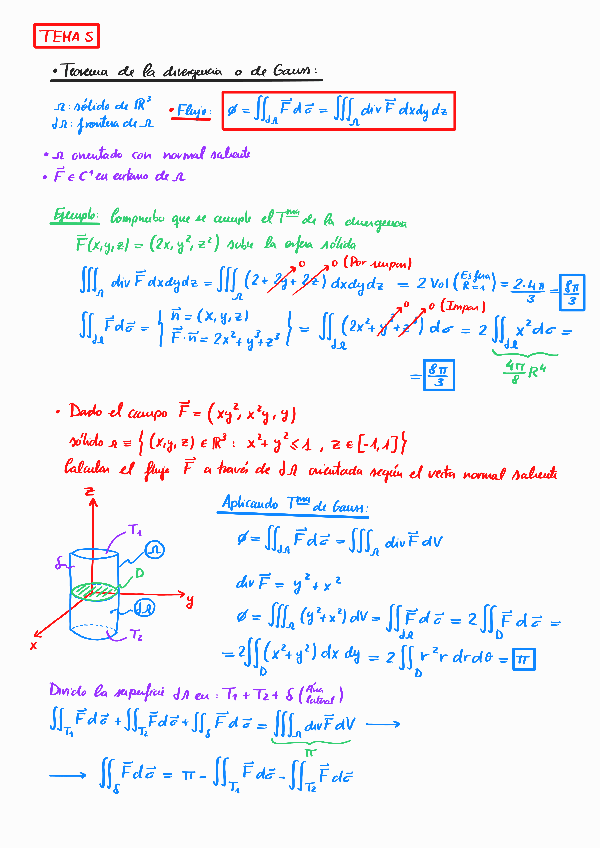 TEMA 5
• Teorema de la divergencia o de Gauss:
Ω: sólido de ℝ³
∂Ω: frontera de Ω
• Flujo: φ = ∬_∂Ω F⃗ dσ⃗ = ∭_Ω div F⃗ dxdydz
• Ω orientado con normal saliente
• F⃗ ∈ C¹ en entorno de Ω
Ejemplo: Comprueba que se cumple el Tma de la divergencia
F⃗(x,y,z) = (2x, y², z²) sobre la esfera sólida
∭_Ω div F⃗ dxdydz = ∭_Ω (2 + 2y + 2z) dxdydz = 2 Vol (Esfera R=1) = 2·4π/3 = 8π/3
0 0 (Por impar)
∬_∂Ω F⃗ dσ⃗ = { n⃗ = (x, y, z) F⃗·n⃗ = 2x² + y³ + z³ } = ∬_∂Ω (2x² + y³ + z³) dσ = 2 ∬_∂Ω x² dσ =
0 0 (Impar)
= 8π/3
4π/8 R⁴
• Dado el campo F⃗ = (xy², x²y, y)
sólido Ω ≡ { (x,y,z) ∈ ℝ³ : x² + y² ≤ 1 , z ∈ [-1,1] }
Calcular el flujo F⃗ a través de ∂Ω orientada según el vector normal saliente
z
T₁
Ω
δ
D
y
∂Ω
x
T₂
Aplicando Tma de Gauss:
φ = ∬_∂Ω F⃗ dσ⃗ = ∭_Ω div F⃗ dV
div F⃗ = y² + x²
φ = ∭_Ω (y² + x²) dV = ∬_∂Ω F⃗ dσ⃗ = 2 ∬_D F⃗ dσ⃗ =
= 2 ∬_D (x² + y²) dx dy = 2 ∬_D r² r dr dθ = π
Divido la superficie ∂Ω en : T₁ + T₂ + δ (Área lateral)
∬_T₁ F⃗ dσ⃗ + ∬_T₂ F⃗ dσ⃗ + ∬_δ F⃗ dσ⃗ = ∭_Ω div F⃗ dV ⟶
π
⟶ ∬_δ F⃗ dσ⃗ = π - ∬_T₁ F⃗ dσ⃗ - ∬_T₂ F⃗ dσ⃗